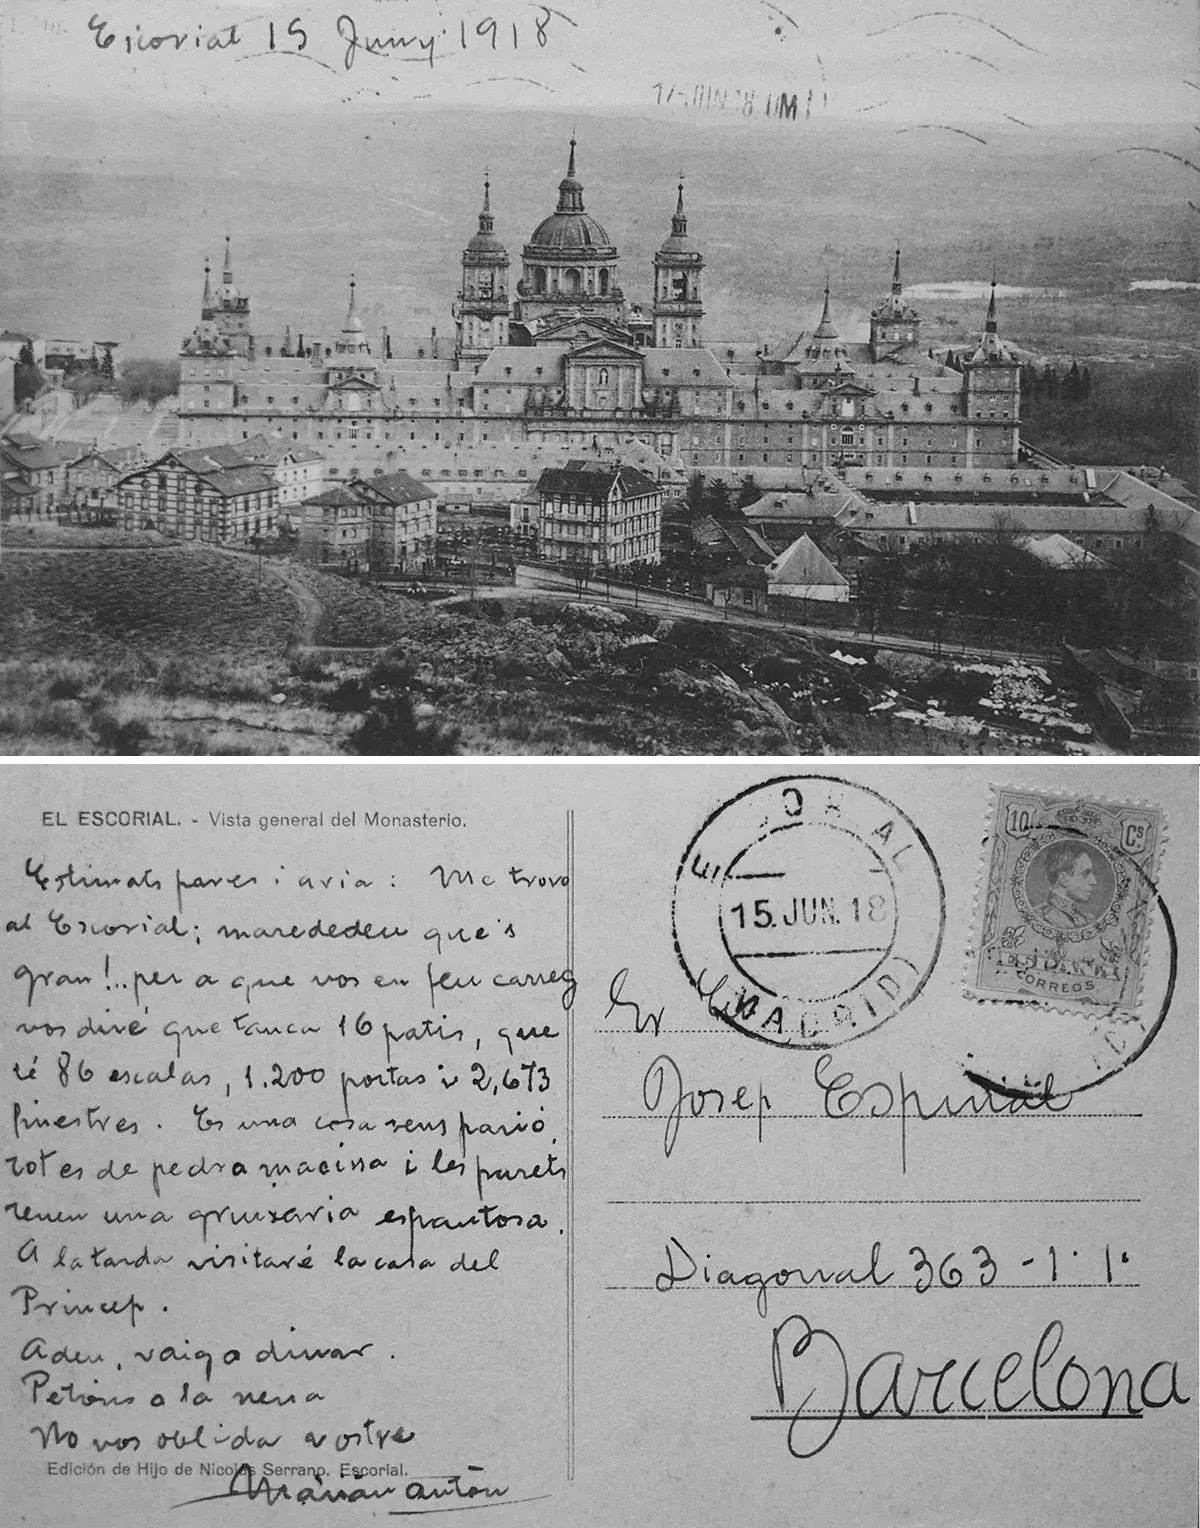 Escorial 15 Juny 1918
17 JUN 18
EL ESCORIAL. - Vista general del Monasterio.
Estimats pares i avia: Me trovo
al Escorial; marededeu que's
gran!.. per a que vos en feu carreg
vos diré que tanca 16 patis, que
té 86 escalas, 1.200 portas i 2,673
finestres. Es una cosa sens parió,
tot es de pedra macissa i les parets
tenen una gruixaria espantosa.
A la tarda visitaré la casa del
Princep.
Adeu, vaig a dinar.
Petons a la nena
No vos oblida vostre
Edición de Hijo de Nicolás Serrano. Escorial.
Marian Antón
ESCORIAL
15.JUN.18
(MADRID)
10 Cs
CORREOS
Sr
Josep Espinal
Diagonal 363 - 1· 1·
Barcelona